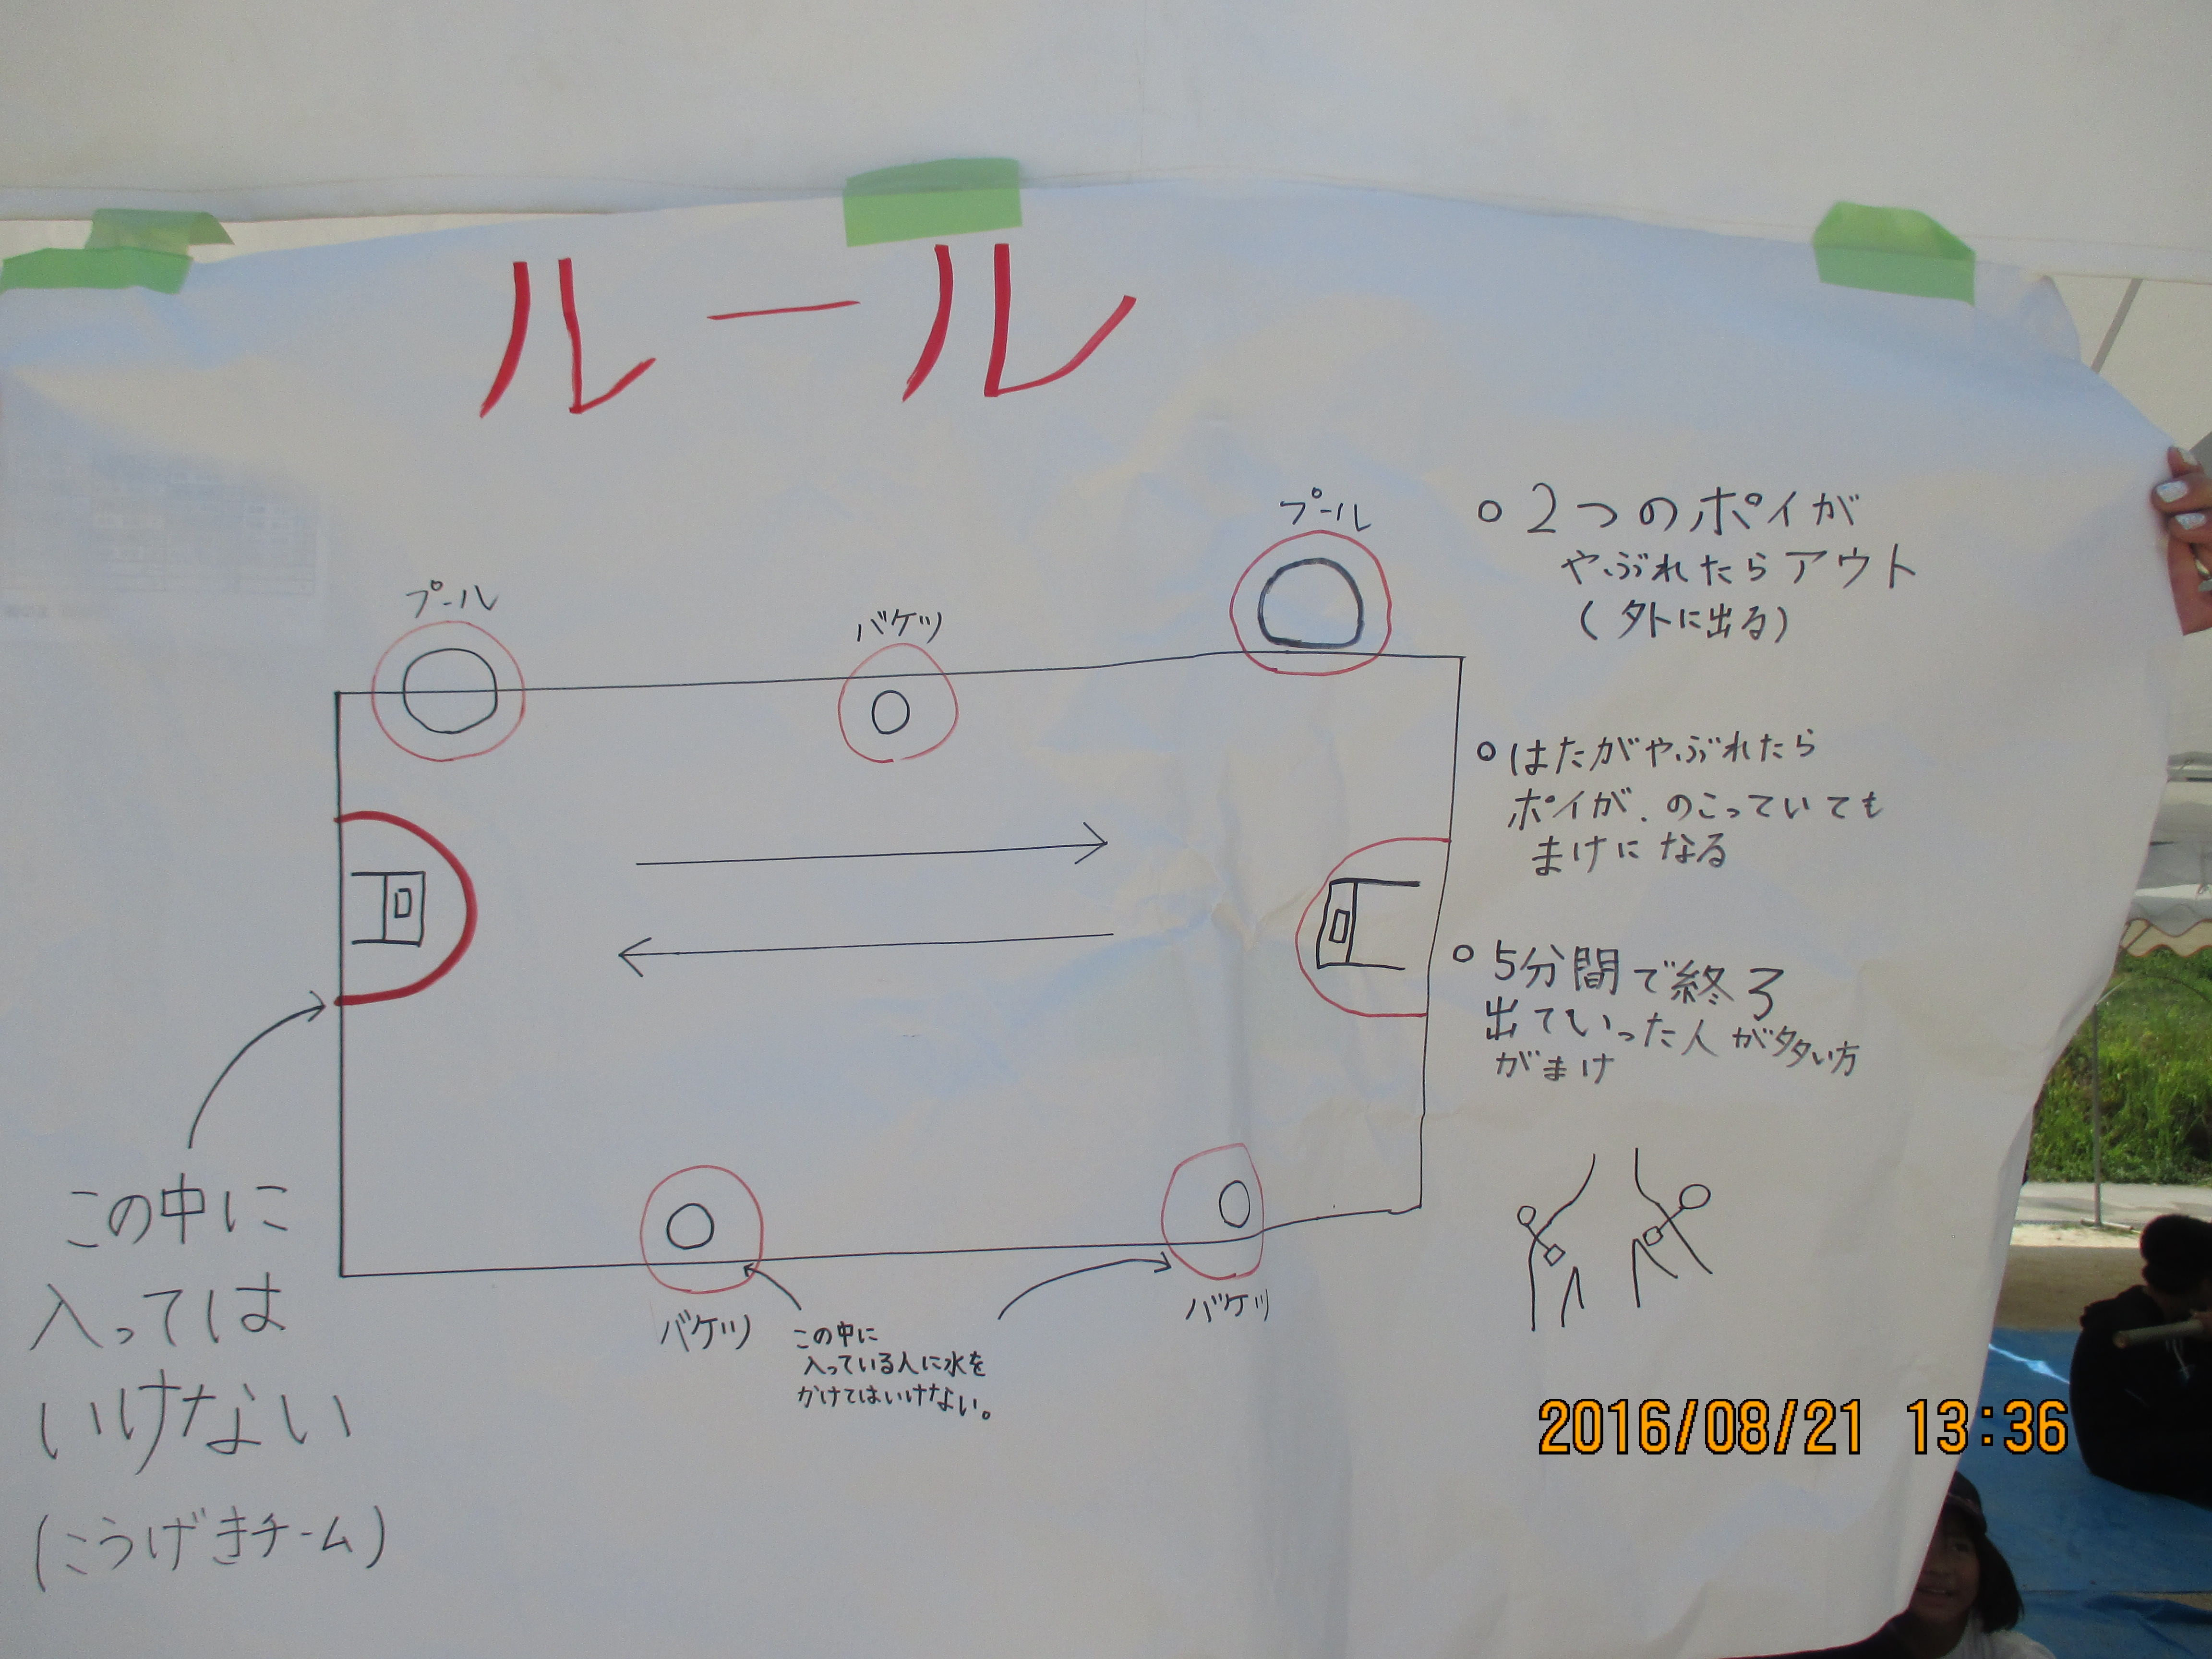 ルール
プール
バケツ
プール
○2つのポイが
やぶれたらアウト
(外に出る)
○はたがやぶれたら
ポイが.のこっていても
まけになる
○5分間で終了
出ていった人が多い方
がまけ
この中に
入っては
いけない
(こうげきチーム)
バケツ
この中に
入っている人に水を
かけてはいけない。
バケツ
2016/08/21 13:36